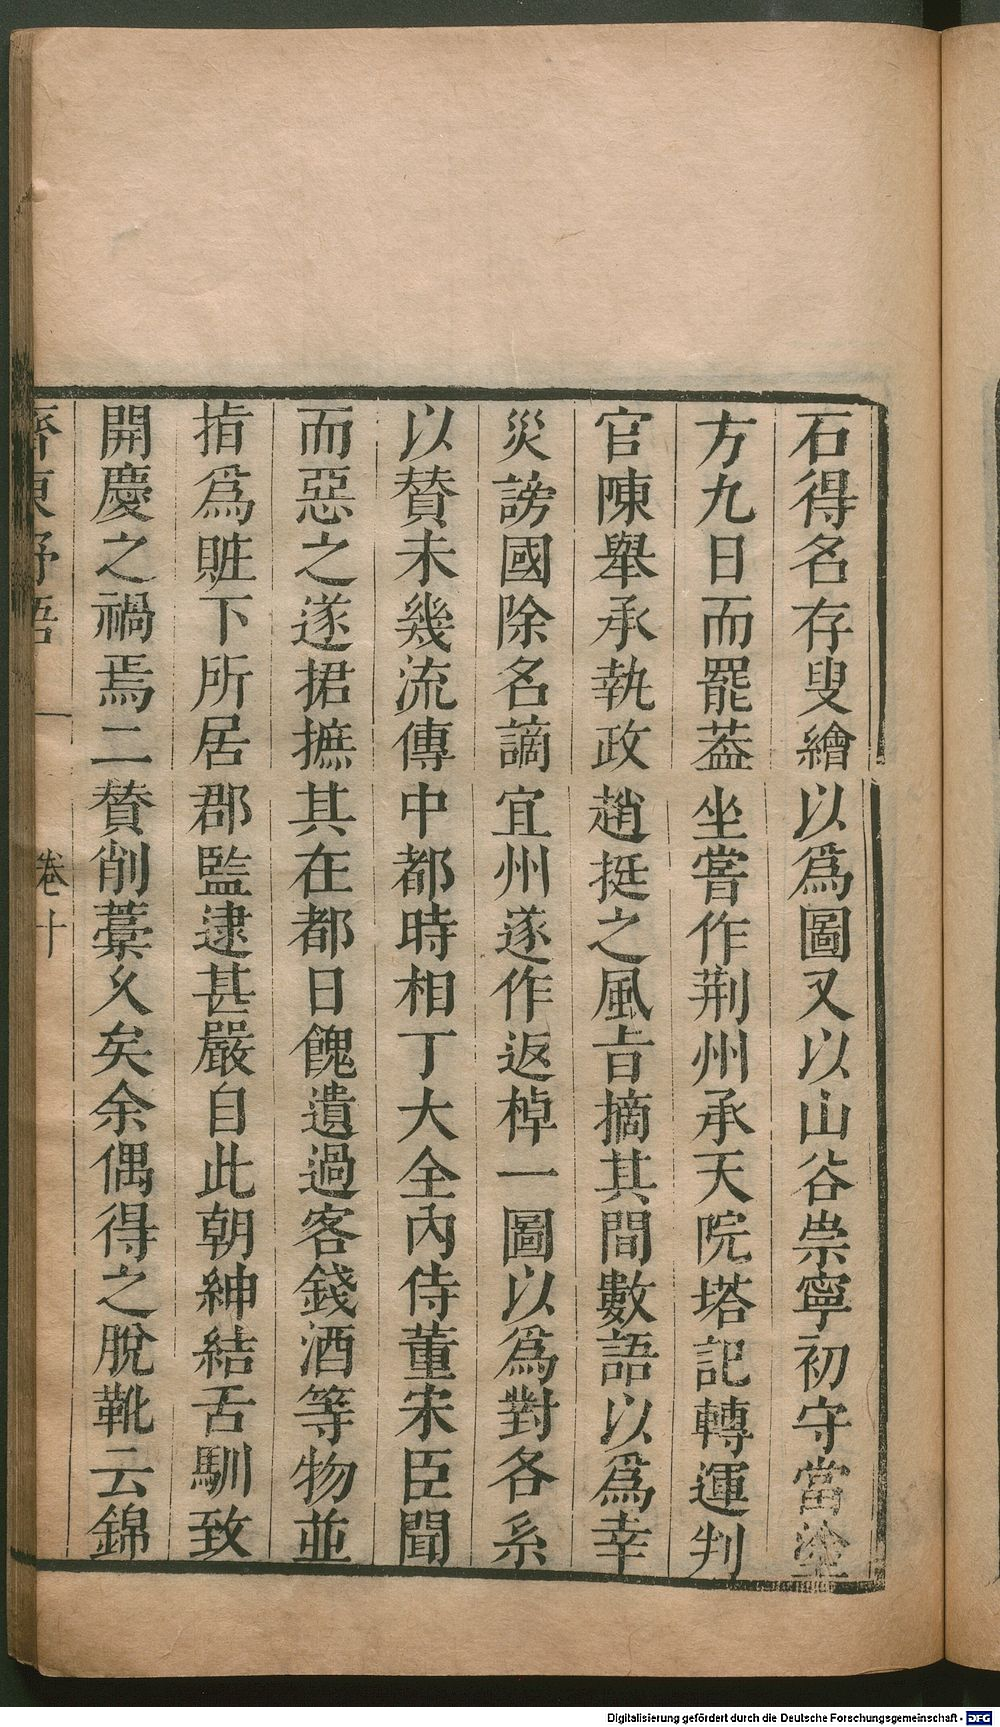 石得名存叟繪以爲圖又以山谷崇寧初守當塗
方九日而罷葢坐嘗作荆州承天院塔記轉運判
官陳舉承執政趙挺之風旨摘其間數語以爲幸
災謗國除名謫宜州遂作返棹一圖以爲對各系
以賛未幾流傳中都時相丁大全內侍董宋臣聞
而惡之遂捃摭其在都日餽遺過客錢酒等物並
指爲贓下所居郡監逮甚嚴自此朝紳結舌馴致
開慶之禍焉二賛削藁乆矣余偶得之脫靴云錦
齊東野語 卷十
Digitalisierung gefördert durch die Deutsche Forschungsgemeinschaft - DFG